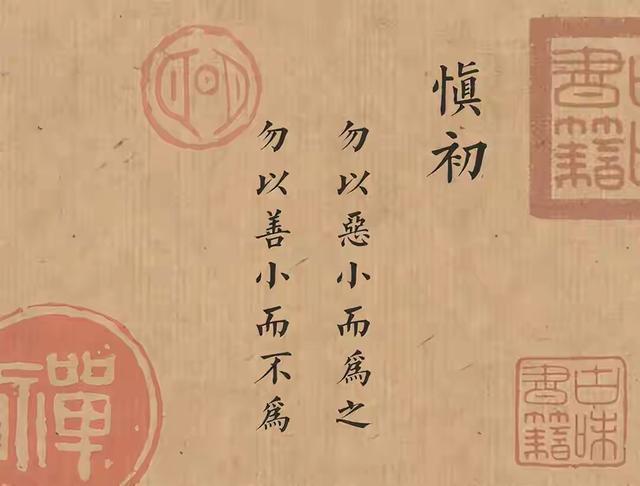 慎初
勿以惡小而為之
勿以善小而不為
古味書籍
禪